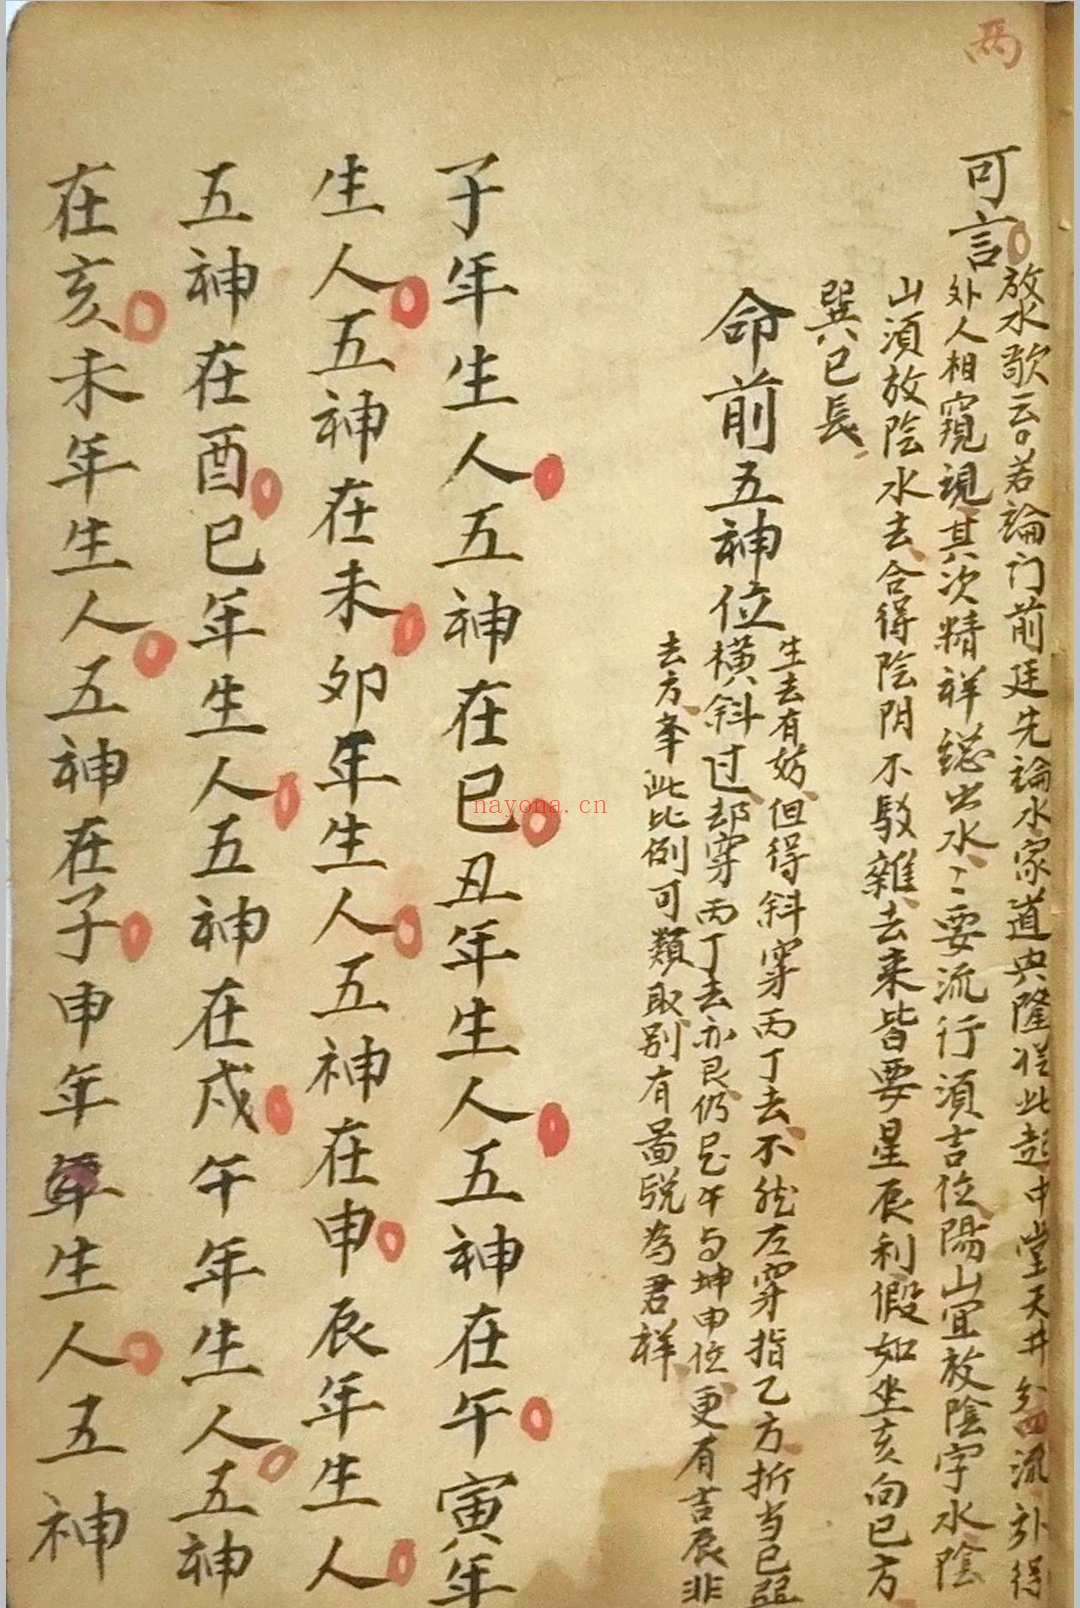 两
可言
放水歌云若論门前廷先論水家道興隆從此起中堂天井分四流外得
外人相窺視其次精祥總出水〻要流行須吉位陽山宜放陰字水陰
山須放陰水去合得陰阴不駁雜去来皆要星辰利假如坐亥向巳方
巽巳長
生去有妨但得斜穿丙丁去不然左穿指乙方折当巳
命前五神位
橫斜过却穿丙丁去亦良仍是午与坤申位更有吉辰非
去方峯此比例可類取别有畐説為君祥
子年生人五神在巳丑年生人五神在午寅年
生人五神在未夘年生人五神在申辰年生人
五神在酉巳年生人五神在戍午年生人五神
在亥未年生人五神在子申年年生人五神
nayona.cn